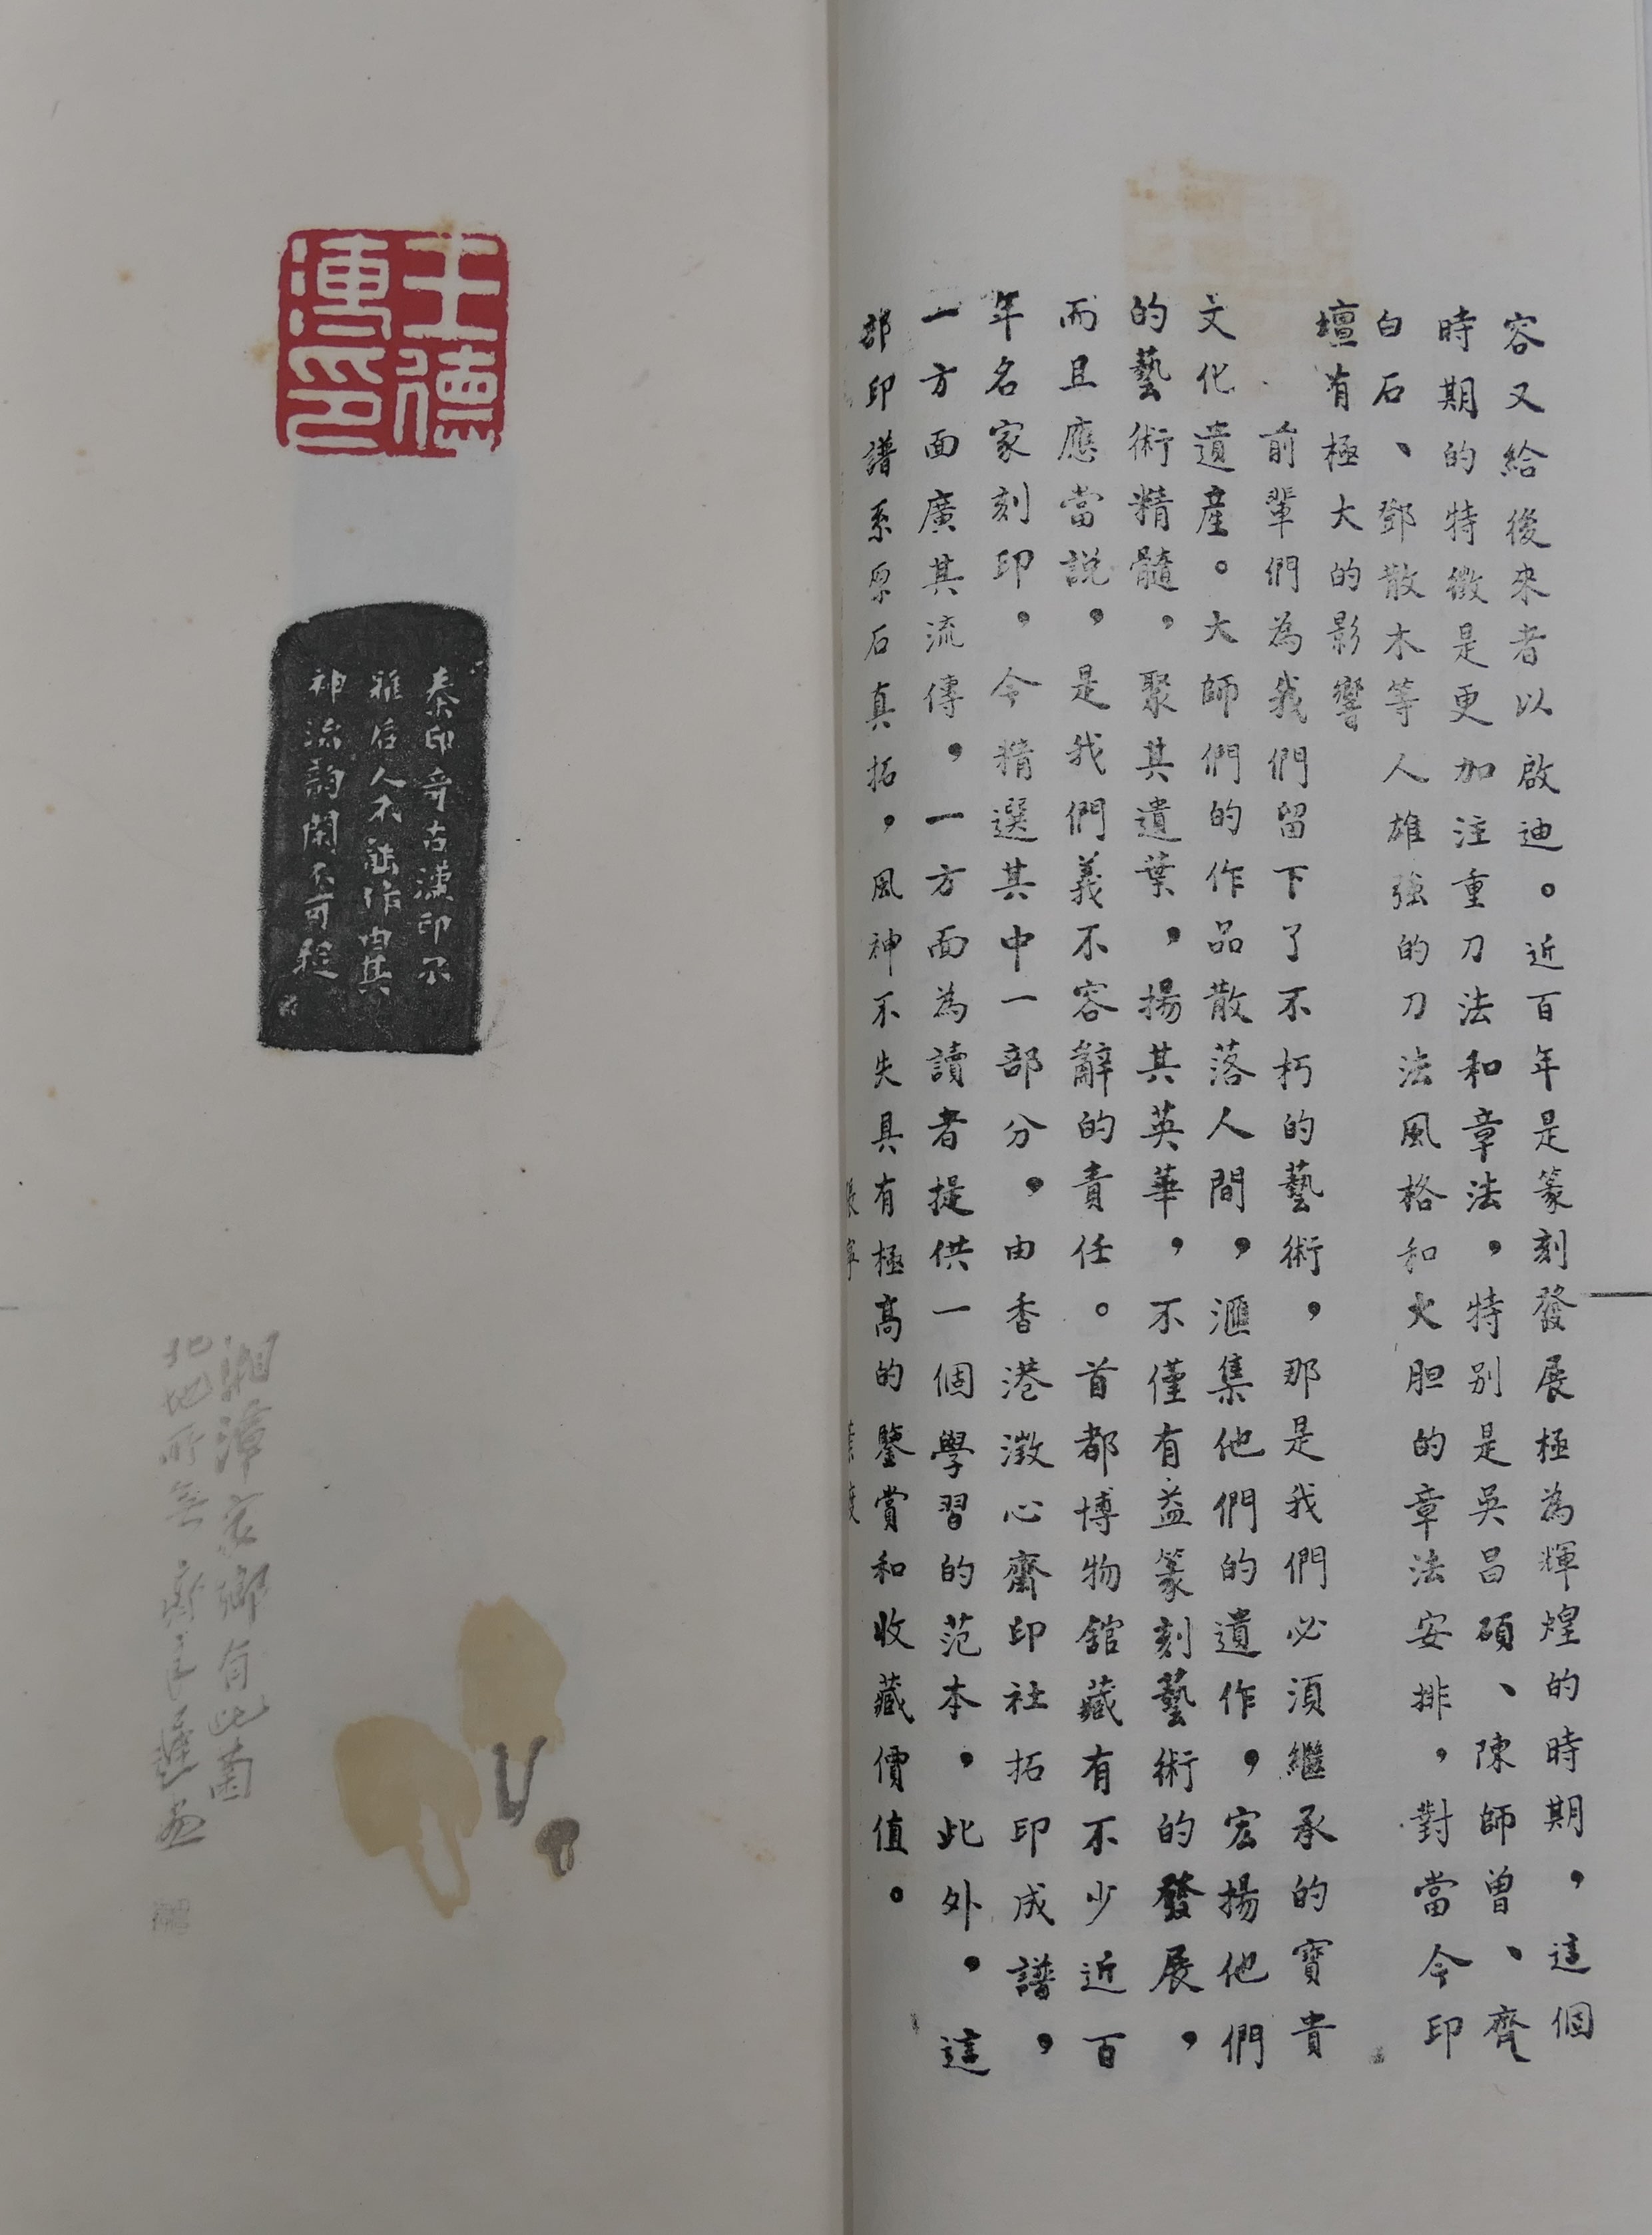 容又給後來者以啟迪。近百年是篆刻發展極為輝煌的時期，這個
時期的特徵是更加注重刀法和章法，特别是吳昌碩、陳師曾、齊
白石、鄧散木等人雄強的刀法風格和大胆的章法安排，對當今印
壇有極大的影響
前輩們為我們留下了不朽的藝術，那是我們必須繼承的寶貴
文化遺産。大師們的作品散落人間，滙集他們的遺作，宏揚他們
的藝術精髓，聚其遺葉，揚其英華，不僅有益篆刻藝術的發展，
而且應當説，是我們義不容辭的責任。首都博物舘藏有不少近百
年名家刻印，今精選其中一部分，由香港澂心齋印社拓印成譜，
一方面廣其流傳，一方面為讀者提供一個學習的范本，此外，這
部印譜系原石真拓，風神不失具有極高的鑒賞和收藏價值。
王德
溥印
秦印奇古漢印尔
雅后人不能作由其
神流韵閑不可捉
湘潭家鄉有此菌
北地所無